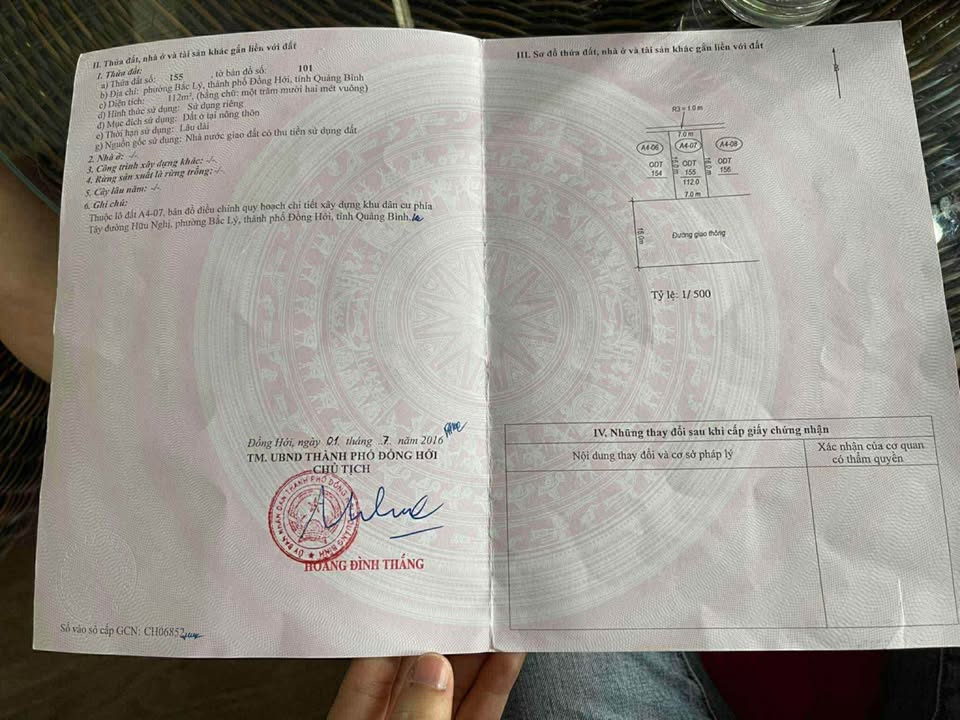 II. Thửa đất, nhà ở và tài sản khác gắn liền với đất
1. Thửa đất:
a) Thửa đất số: 155 , tờ bản đồ số: 101
b) Địa chỉ: phường Bắc Lý, thành phố Đồng Hới, tỉnh Quảng Bình
c) Diện tích: 112m², (bằng chữ: một trăm mười hai mét vuông)
d) Hình thức sử dụng: Sử dụng riêng
đ) Mục đích sử dụng: Đất ở tại nông thôn
e) Thời hạn sử dụng: Lâu dài
g) Nguồn gốc sử dụng: Nhà nước giao đất có thu tiền sử dụng đất
2. Nhà ở: -/-
3. Công trình xây dựng khác: -/-
4. Rừng sản xuất là rừng trồng: -/-
5. Cây lâu năm: -/-
6. Ghi chú:
Thuộc lô đất A4-07, bản đồ điều chỉnh quy hoạch chi tiết xây dựng khu dân cư phía
Tây đường Hữu Nghị, phường Bắc Lý, thành phố Đồng Hới, tỉnh Quảng Bình.
Đồng Hới, ngày 01 tháng 7 năm 2016
TM. UBND THÀNH PHỐ ĐỒNG HỚI
CHỦ TỊCH
ỦY BAN NHÂN DÂN THÀNH PHỐ ĐỒNG HỚI
QUẢNG BÌNH
HOÀNG ĐÌNH THẮNG
Số vào sổ cấp GCN: CH06852
III. Sơ đồ thửa đất, nhà ở và tài sản khác gắn liền với đất
B
R3 = 1.0 m
7.0 m
A4-06
A4-07
A4-08
ODT
154
16.0m
ODT
155
112.0
16.0m
ODT
156
7.0 m
15.0m
Đường giao thông
Tỷ lệ: 1/ 500
IV. Những thay đổi sau khi cấp giấy chứng nhận
Nội dung thay đổi và cơ sở pháp lý
Xác nhận của cơ quan
có thẩm quyền